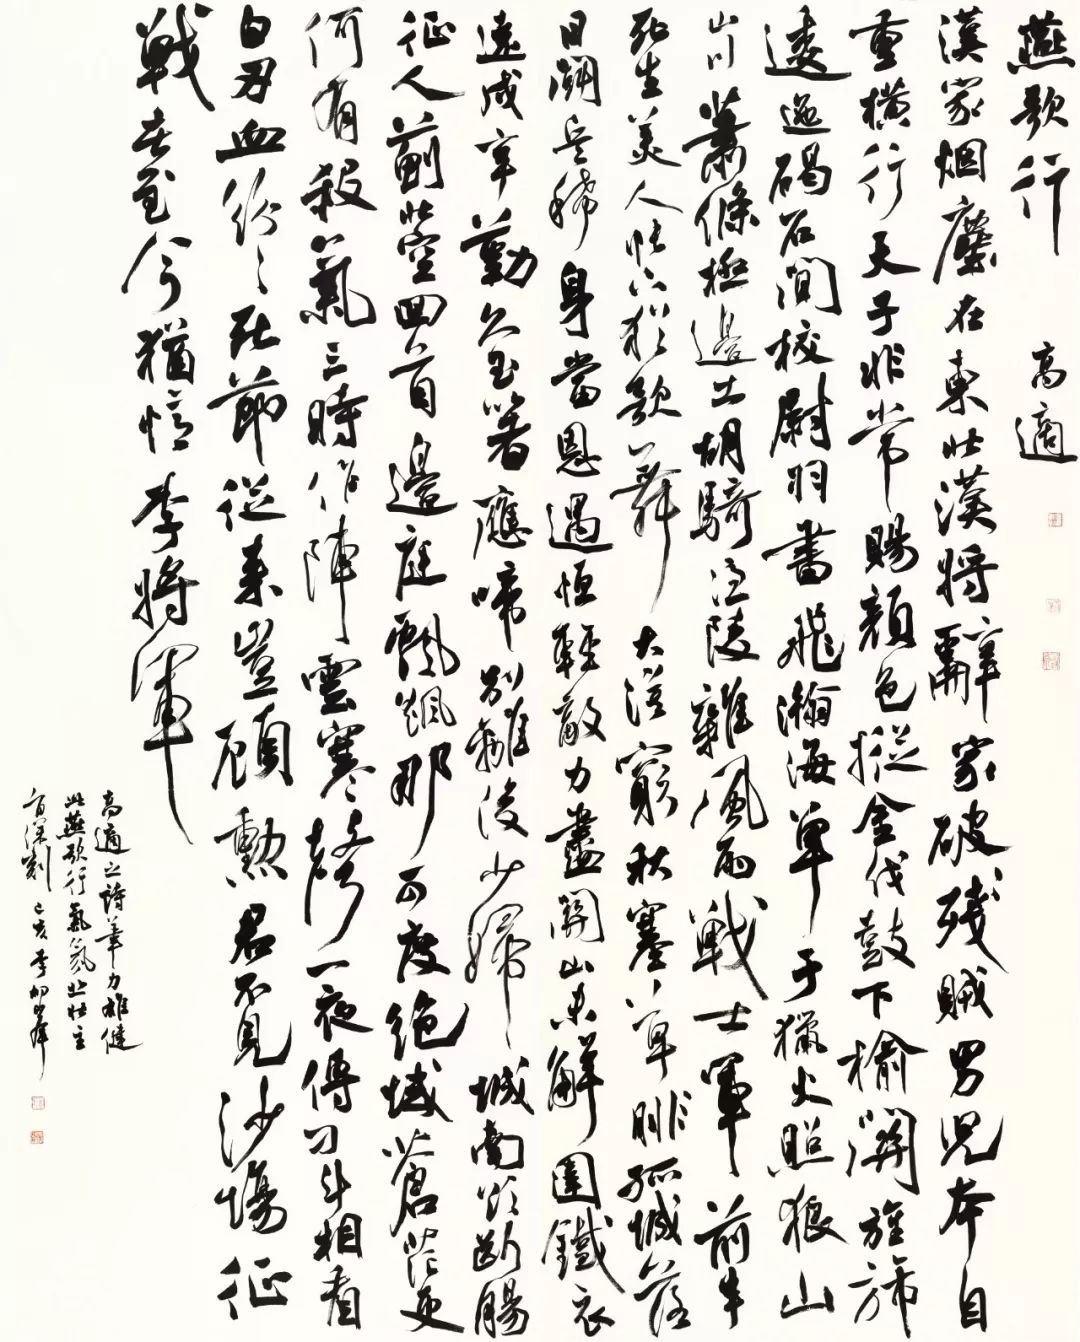 燕歌行 高適
漢家烟塵在東北漢將辭家破殘賊男兒本自
重橫行天子非常賜顏色摐金伐鼓下榆關旌旆
逶迤碣石間校尉羽書飛瀚海單于獵火照狼山
山川蕭條極邊土胡騎憑陵雜風雨戰士軍前半
死生美人帳下猶歌舞大漠窮秋塞草腓孤城落
日鬭兵稀身當恩遇恒輕敵力盡關山未解圍鐵衣
遠戍辛勤久玉箸應啼別離後少婦城南欲斷腸
征人薊北空回首邊庭飄颻那可度絕域蒼茫更
何有殺氣三時作陣雲寒聲一夜傳刁斗相看
白刃血紛々死節從來豈顧勳君不見沙場征
戰苦至今猶憶李將軍
高適之詩筆力雄健
此燕歌行氣氛悲壯主
旨深刻 己亥 李